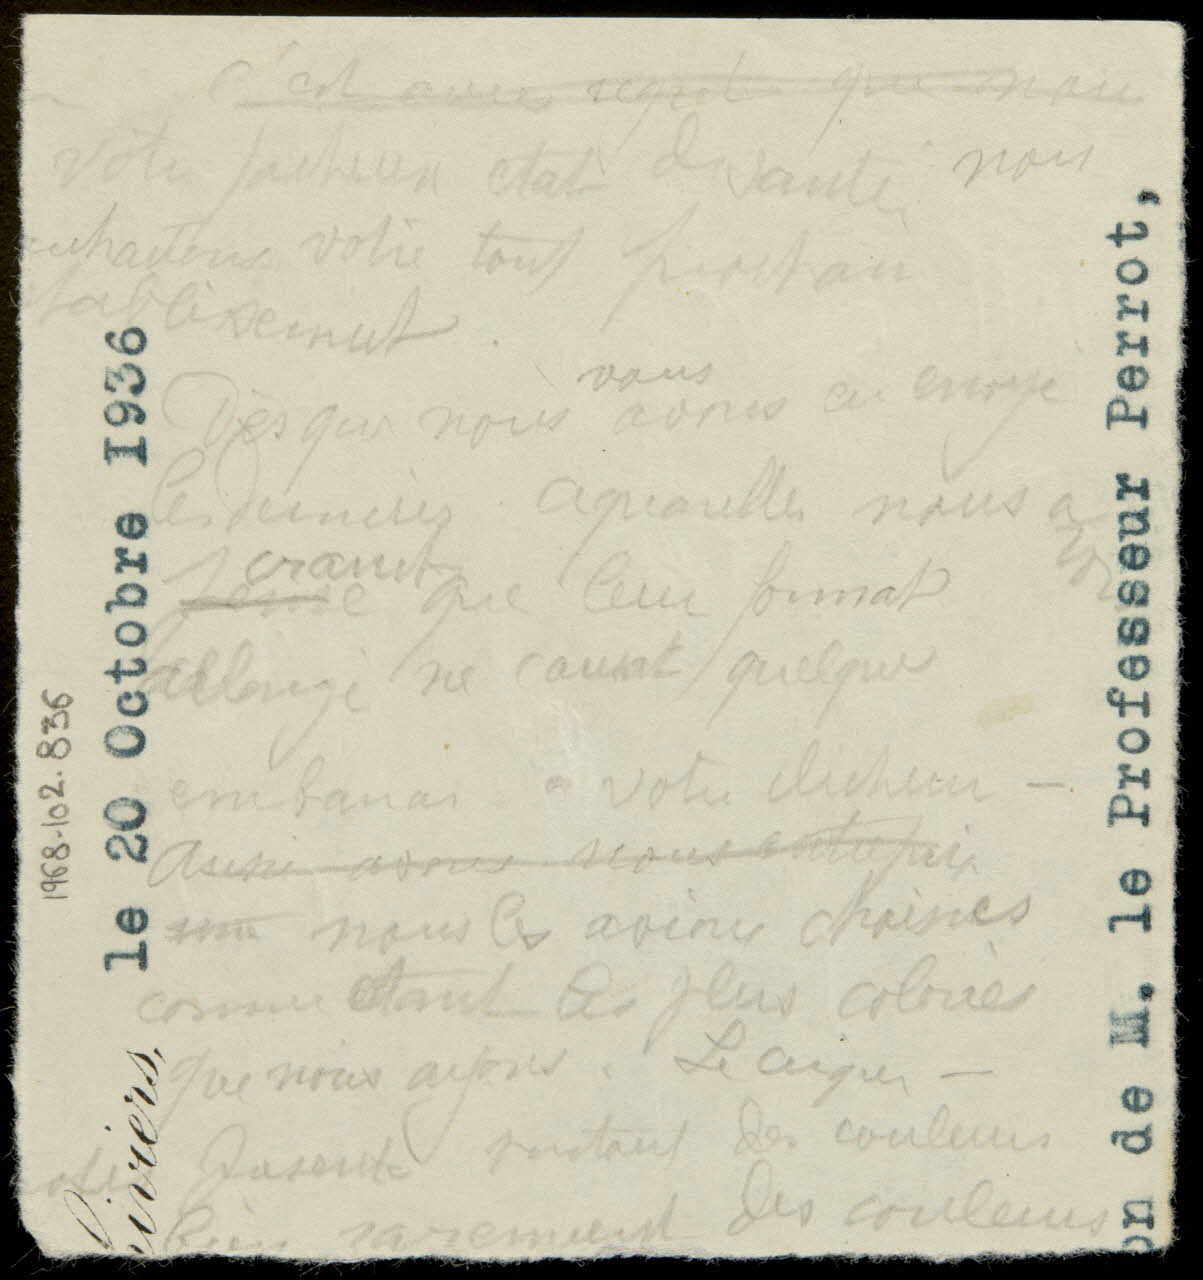 c'est avec regret que nous
votre fâcheux état de santé nous
ouhaitons votre tout prochain
tablissement.
Dès que nous vous avons eu envoyé
les dernières aquarelles nous a
craint que leur format
allongé ne causat quelque
embarras à votre clicheur —
nous les avions choisies
comme étant les plus coloriés
que nous ayons. Le
surtout des couleurs
bien rarement des couleurs
le 20 Octobre 1936
livriers,
1968-102-836
on de M. le Professeur Perrot,